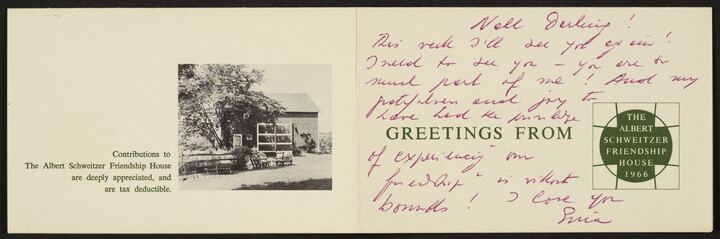 Contributions to
The Albert Schweitzer Friendship House
are deeply appreciated, and
are tax deductible.
Nell Darling!
This week I'll see you again!
I need to see you – you are so
much part of me! And my
gratefulness and joy to
have had the privilege
GREETINGS FROM
THE
ALBERT
SCHWEITZER
FRIENDSHIP
HOUSE
1966
of experiencing "our
friendship" is without
bounds! I love you
Erica